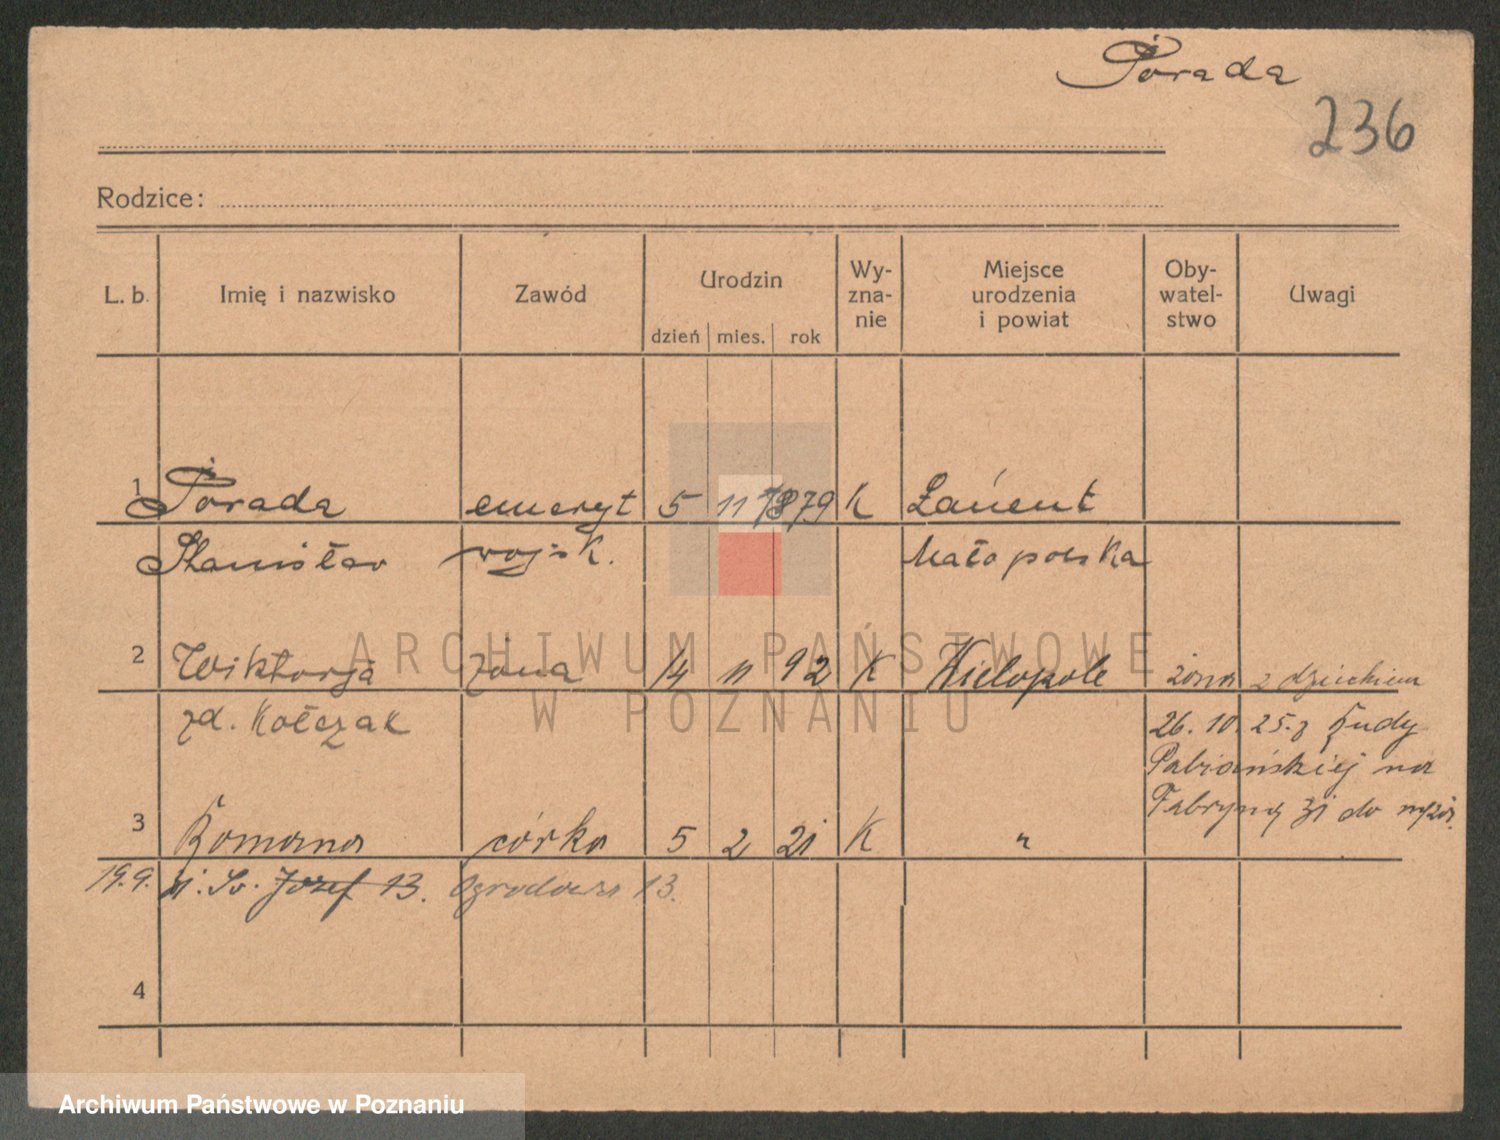 Porada
236
Rodzice:
L. b. Imię i nazwisko Zawód Urodzin dzień mies. rok Wy-zna-nie Miejsce urodzenia i powiat Oby-watel-stwo Uwagi
1 Porada emeryt 5 11 1879 K Łańcut
Stanisław wojsk. Małopolska
ARCHIWUM PAŃSTWOWE
W POZNANIU
2 Wiktorja żona 14 11 92 K Wielopole żona z dzieckiem
zd. Kołczak 26. 10. 25. z Rudy
Pabiańskiej na
3 Romana córka 5 2 21 K " do męża.
19. 9. Św. Józef 13. Ogrodowa 13.
4
Archiwum Państwowe w Poznaniu